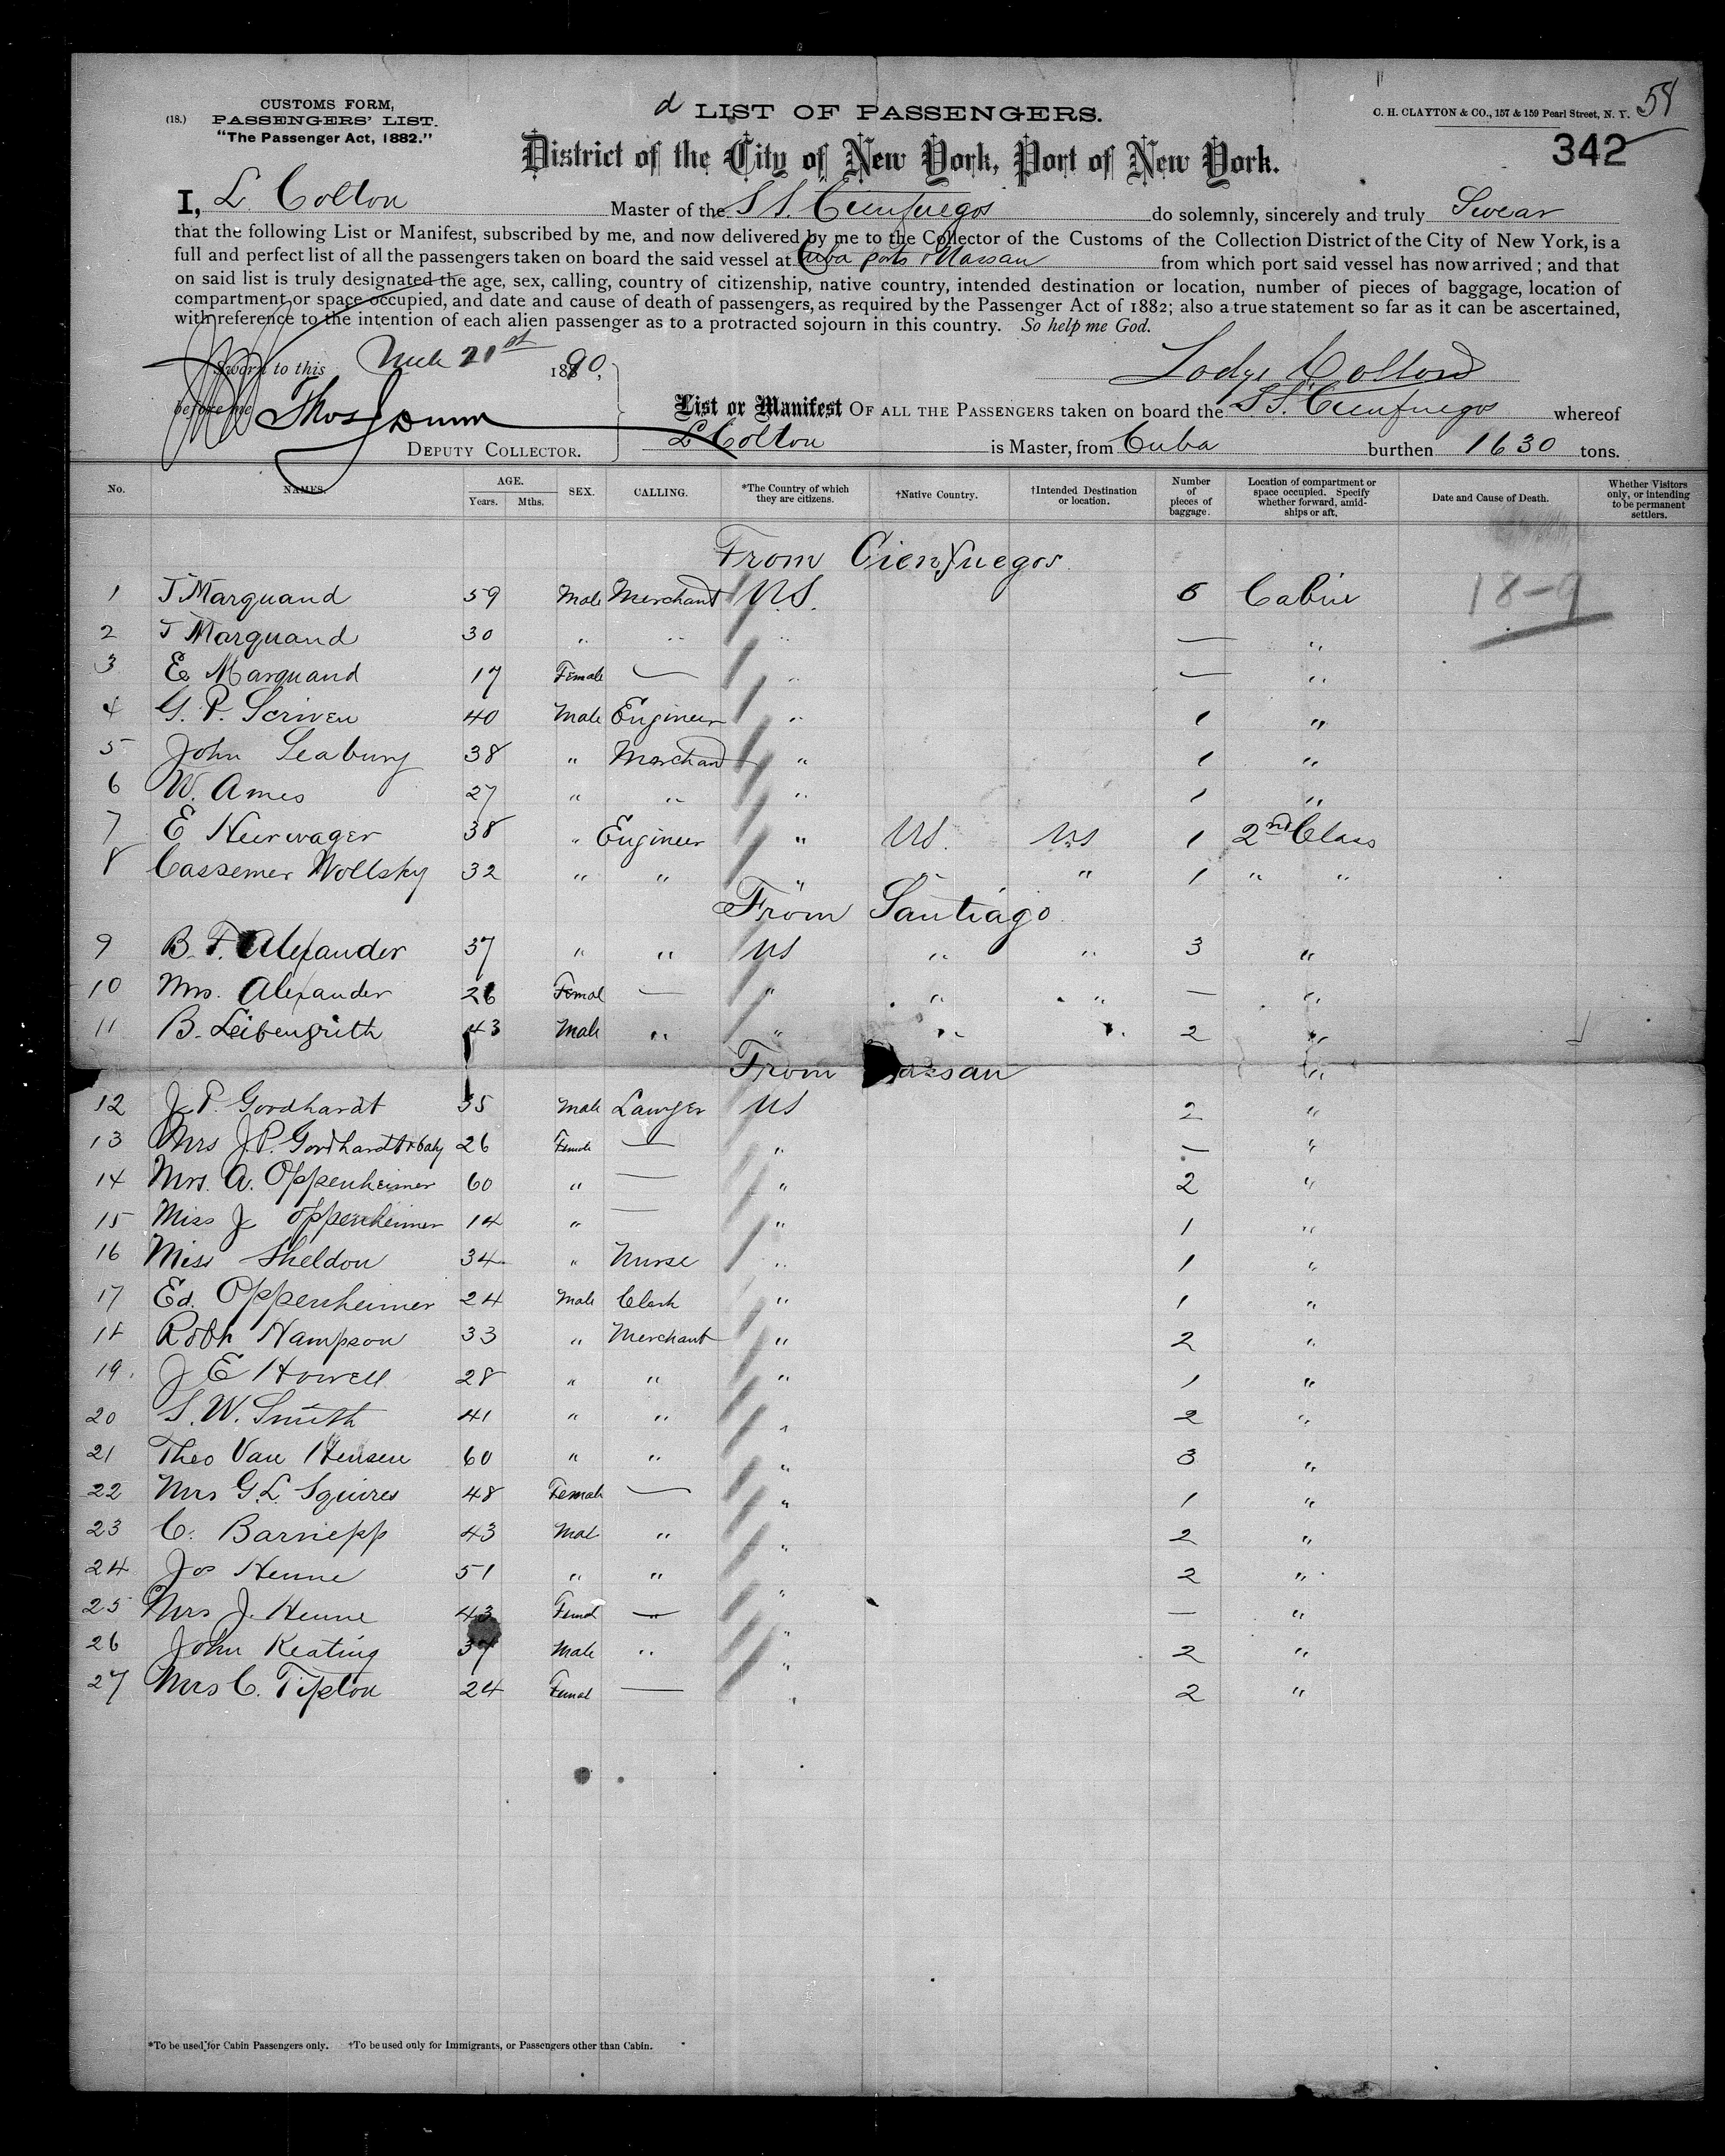 CUSTOMS FORM,
(18.) PASSENGERS' LIST.
"The Passenger Act, 1882."
d LIST OF PASSENGERS.
C. H. CLAYTON & CO., 157 & 159 Pearl Street, N. Y.
342
District of the City of New York, Port of New York.
I, L. Colton Master of the S S. Cienfuegos do solemnly, sincerely and truly Swear
that the following List or Manifest, subscribed by me, and now delivered by me to the Collector of the Customs of the Collection District of the City of New York, is a
full and perfect list of all the passengers taken on board the said vessel at Cuba ports & Nassau from which port said vessel has now arrived; and that
on said list is truly designated the age, sex, calling, country of citizenship, native country, intended destination or location, number of pieces of baggage, location of
compartment or space occupied, and date and cause of death of passengers, as required by the Passenger Act of 1882; also a true statement so far as it can be ascertained,
with reference to the intention of each alien passenger as to a protracted sojourn in this country. So help me God.
Sworn to this Mch 21st 1890,
Colton
before me Thos Dunn
List or Manifest OF ALL THE PASSENGERS taken on board the S.S. Cienfuegos whereof
DEPUTY COLLECTOR.
L Colton is Master, from Cuba burthen 1630 tons.
No. NAMES. AGE. Years. Mths. SEX. CALLING. *The Country of which they are citizens. †Native Country. †Intended Destination or location. Number of pieces of baggage. Location of compartment or space occupied. Specify whether forward, amidships or aft. Date and Cause of Death. Whether Visitors only, or intending to be permanent settlers.
From Cienfuegos
1 J Marquand 59 Male Merchant U.S. 6 Cabin 18-9
2 J Marquand 30 " " " — "
3 E. Marquand 17 Female — " — "
4 G. P. Scriven 40 Male Engineer " 1 "
5 John Seabury 38 " Merchant " 1 "
6 W. Ames 27 " " " 1 "
7 E Heerwager 38 " Engineer " US. US 1 2nd Class
8 Cassemer Wollsky 32 " " " " " 1 " "
From Santiago
9 B. F. Alexander 37 " " US " " 3 "
10 Mrs. Alexander 26 Femal — " " " — "
11 B. Leibengrith 43 Male " " " " 2 "
From Nassau
"
12 J. P. Goodhardt 35 Male Lawyer US 2 "
13 Mrs J.P. Goodhardt & baby 26 Female — " — "
14 Mrs. A. Oppenheimer 60 " — " 2 "
15 Miss J Oppenheimer 14 " — " 1 "
16 Miss Sheldon 34 " Nurse " 1 "
17 Ed. Oppenheimer 24 Male Clerk " 1 "
18 Robt Hampson 33 " Merchant " 2 "
19. J E Howell 28 " " " 1 "
20 S. W. Smith 41 " " " 2 "
21 Theo Van Hensen 60 " " " 3 "
22 Mrs G. L. Squires 48 Female — " 1 "
23 C. Barnepp 43 Mal " " 2 "
24 Jos Henne 51 " " " 2 "
25 Mrs J. Henne 43 Femal — " — "
26 John Keating 37 Male " " 2 "
27 Mrs C. Tipton 24 Femal — " 2 "
*To be used for Cabin Passengers only. †To be used only for Immigrants, or Passengers other than Cabin.